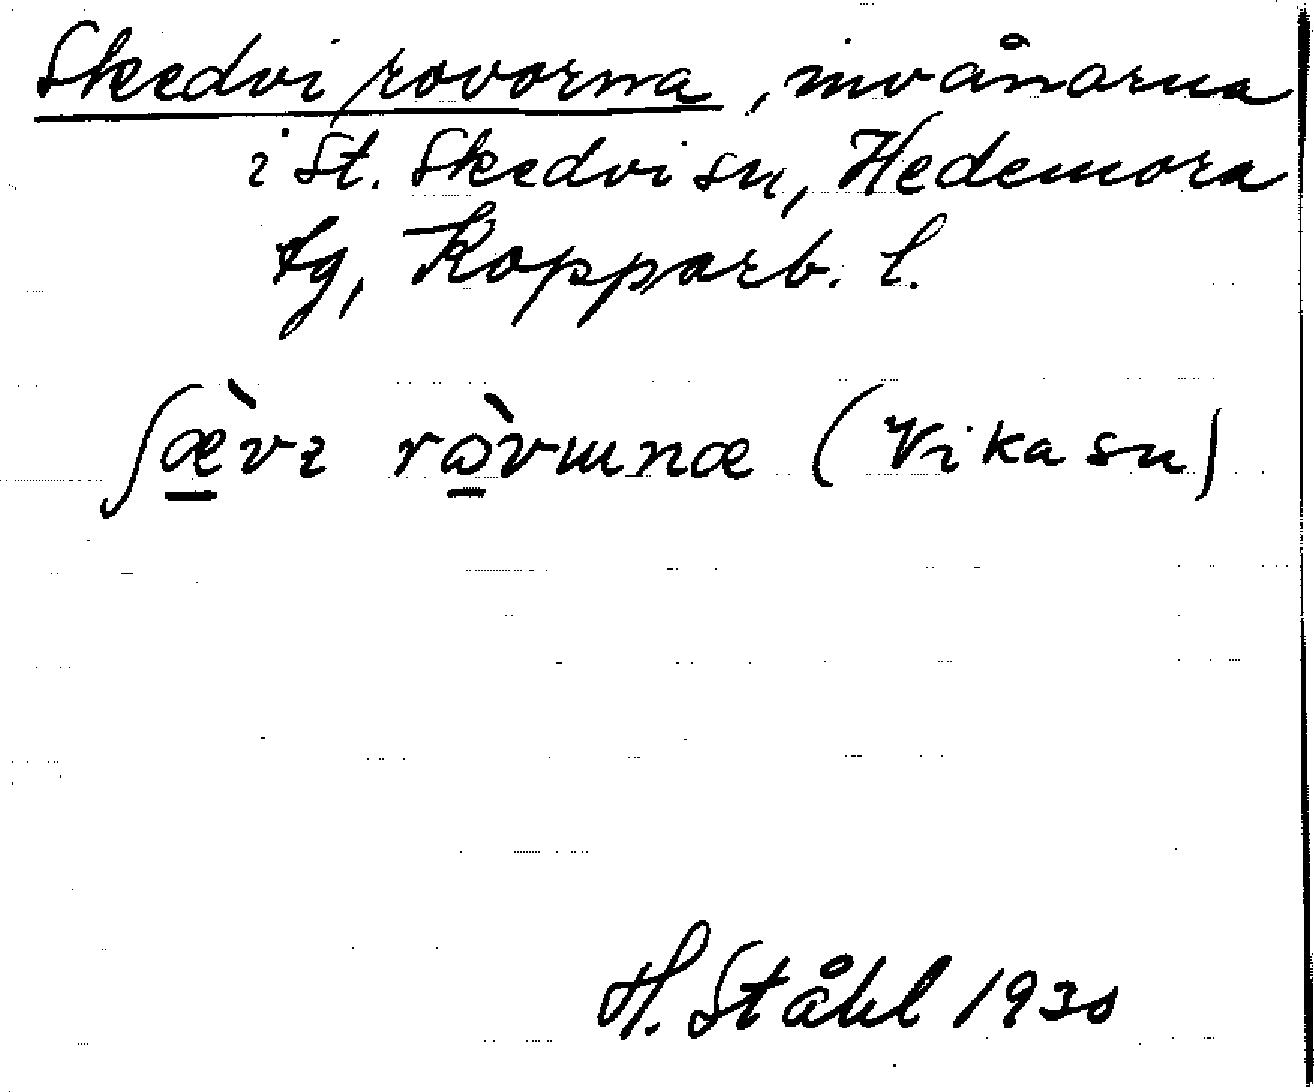 Skedvi rovorna, invånarna
i St. Skedvi sn, Hedemora
tg, Kopparb. l.
ʃæ̀vɩ rɷ̀vɯnɑ (Vika sn)
H. Ståhl 1930